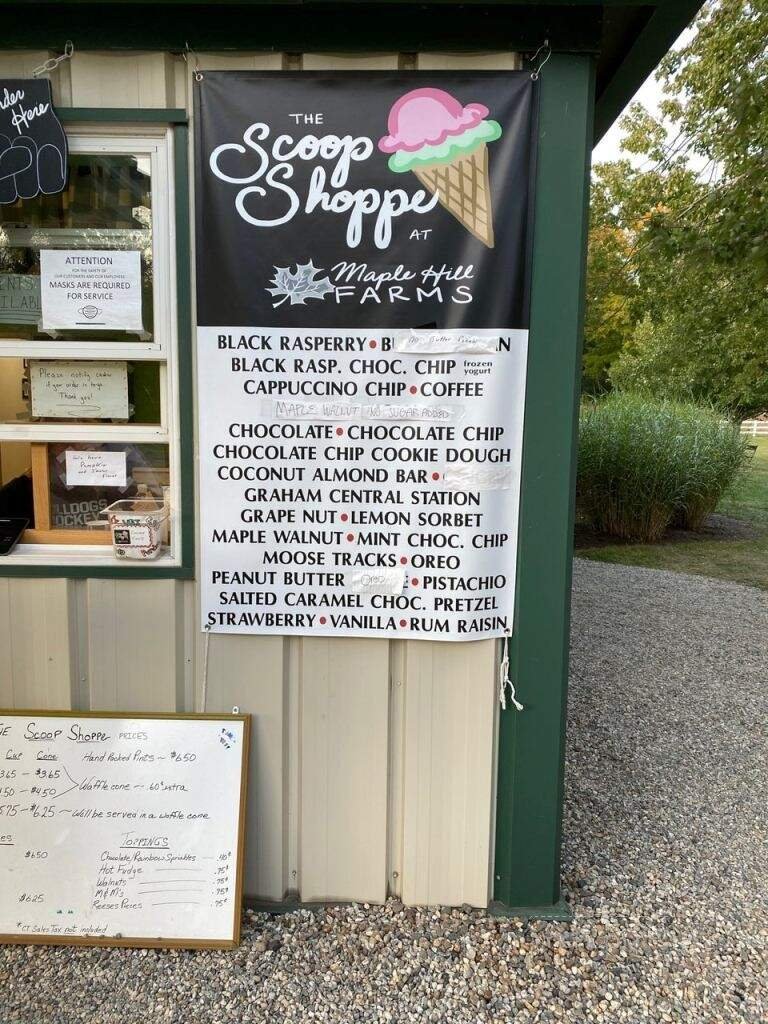 der
Here
THE
Scoop
Shoppe
AT
Maple Hill
FARMS
ATTENTION
FOR THE SAFETY OF
OUR CUSTOMERS AND OUR EMPLOYEES
MASKS ARE REQUIRED
FOR SERVICE
Please notify
if your order is to go
Thank you!
We have
Pumpkin
and
BLACK RASPERRY • B N
BLACK RASP. CHOC. CHIP frozen yogurt
CAPPUCCINO CHIP • COFFEE
MAPLE WALNUT NO SUGAR ADDED
CHOCOLATE • CHOCOLATE CHIP
CHOCOLATE CHIP COOKIE DOUGH
COCONUT ALMOND BAR •
GRAHAM CENTRAL STATION
GRAPE NUT • LEMON SORBET
MAPLE WALNUT • MINT CHOC. CHIP
MOOSE TRACKS • OREO
PEANUT BUTTER OREO • PISTACHIO
SALTED CARAMEL CHOC. PRETZEL
STRAWBERRY • VANILLA • RUM RAISIN
LLDOGS
OCKEY
E Scoop Shoppe PRICES
Cup Cone Hand Packed Pints ~ $6.50
3.65 - $3.65
4.50 - $4.50 Waffle cone ~ .60¢ extra
5.75 - $6.25 ~ Will be served in a waffle cone
ES TOPPINGS
$6.50 Chocolate/Rainbow Sprinkles .40¢
Hot Fudge .75¢
Walnuts .75¢
M&M's .75¢
$6.25 Reeses Pieces .75¢
* CT Sales Tax not included